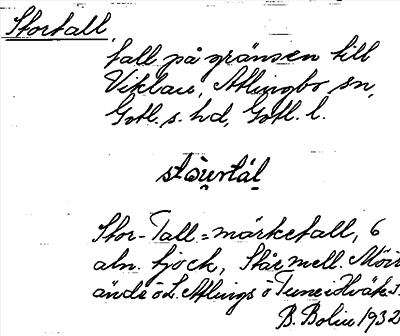 Stortall
tall på gränsen till
Viklau, Atlingbo sn,
Gotl. s. hd, Gotl. l.
stòu̯rtál
Stor-Tall = märketall, 6
aln. tjock, Står mell. Möir
ände ö L. Atlings ö Tune i
B. Bolin 1932